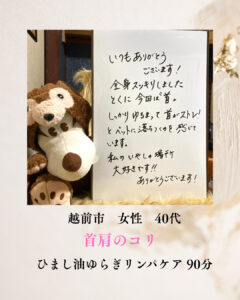 いつもありがとう
ございます！
全身スッキリしました
とくに今回は"首"。
しっかりゆるまって首がストレッチ
とベットに落ちつくのを感じて
います。
私のいやしの場所
大好きです！！
ありがとうございます！
越前市　女性　40代
首肩のコリ
ひまし油ゆらぎリンパケア 90分